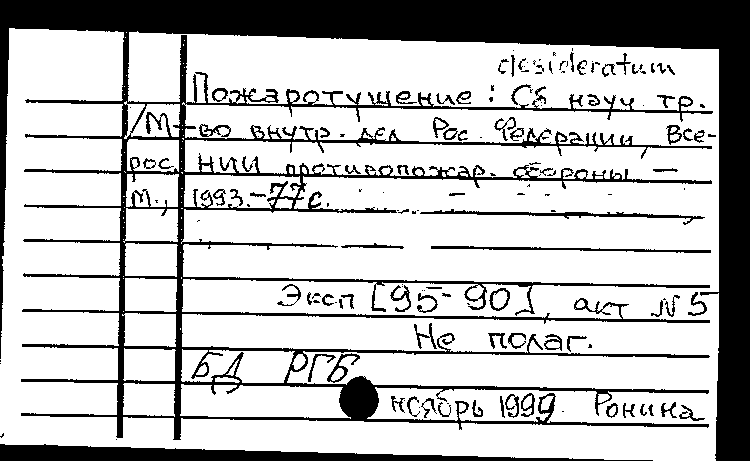 desideratum
Пожаротушение : Сб науч тр.
/М-во внутр. дел Рос. Федерации, Все-
рос. НИИ противопожар. обороны —
М., 1993.-77с.
Эксп [95-90], акт №5
Не полаг.
БД РГБ
ноябрь 1999 Ронина